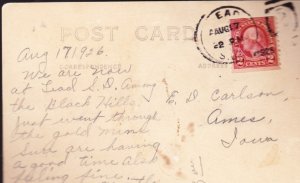 POST CARD
Aug 17 1926.
We are now
at Lead S.D. among
the Black Hills.
Just went through
the gold mine
Sure are having
a good time also
feeling fine.
ADDRESS
E. D. Carlson,
Ames,
Iowa
AUG 17
2 CENTS 2